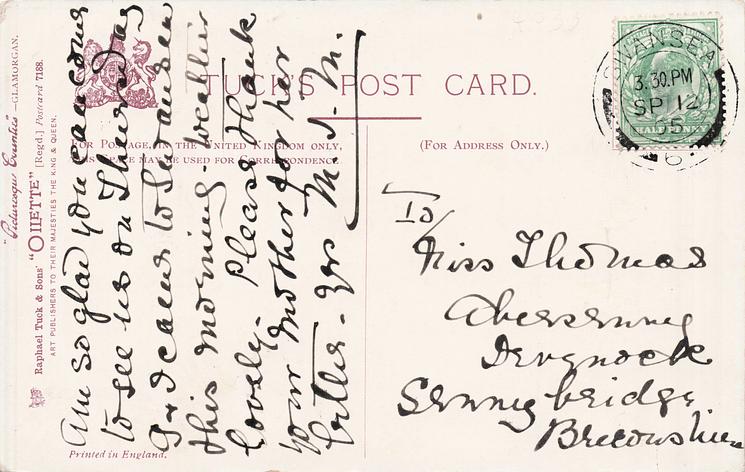 "Picturesque Counties"—GLAMORGAN.
Raphael Tuck & Sons' "OILETTE" [Regd.] Postcard 7188.
ART PUBLISHERS TO THEIR MAJESTIES THE KING & QUEEN.
TUCK'S POST CARD.
FOR POSTAGE, IN THE UNITED KINGDOM ONLY,
THIS SPACE MAY BE USED FOR CORRESPONDENCE
(FOR ADDRESS ONLY.)
SWANSEA
3.30.PM
SP 12
HALFPENNY
6
am so glad you can come
to see us on Thursday
I came to Swansea
this morning. weather
lovely. Please thank
your mother for her
letter - yrs M. J. M.
To
Miss Thomas
Abersenney
Devynock
Sennybridge
Breconshire
Printed in England.